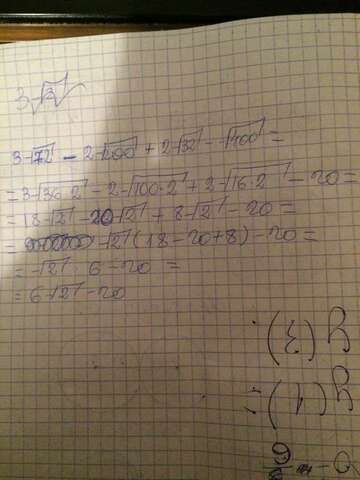 3√3
3√72 - 2√200 + 2√32 - √400 =
= 3√36·2 - 2√100·2 + 2√16·2 - 20 =
= 18√2 - 20√2 + 8√2 - 20 =
= √2 (18 - 20 + 8) - 20 =
= √2 · 6 - 20 =
= 6√2 - 20